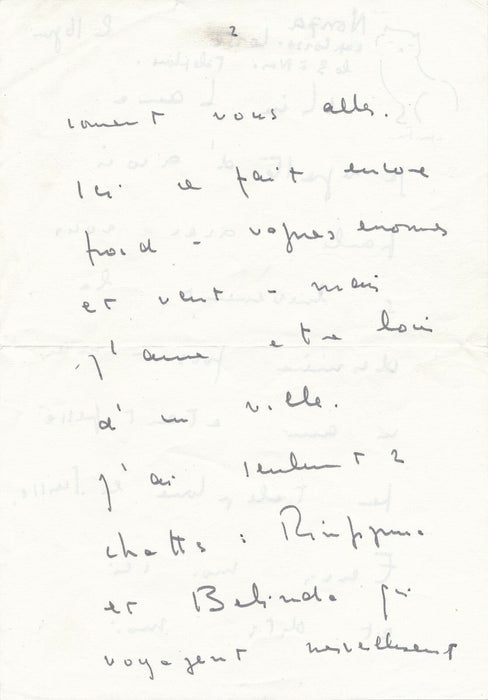 2
coment vous allez.
Ici ce fait encore
froid - vagues enormes
et vent - mais
j'aime etre loin
d'un ville.
j'ai seulement 2
chatts :
et Belinda qui
voyagent merveilleusement